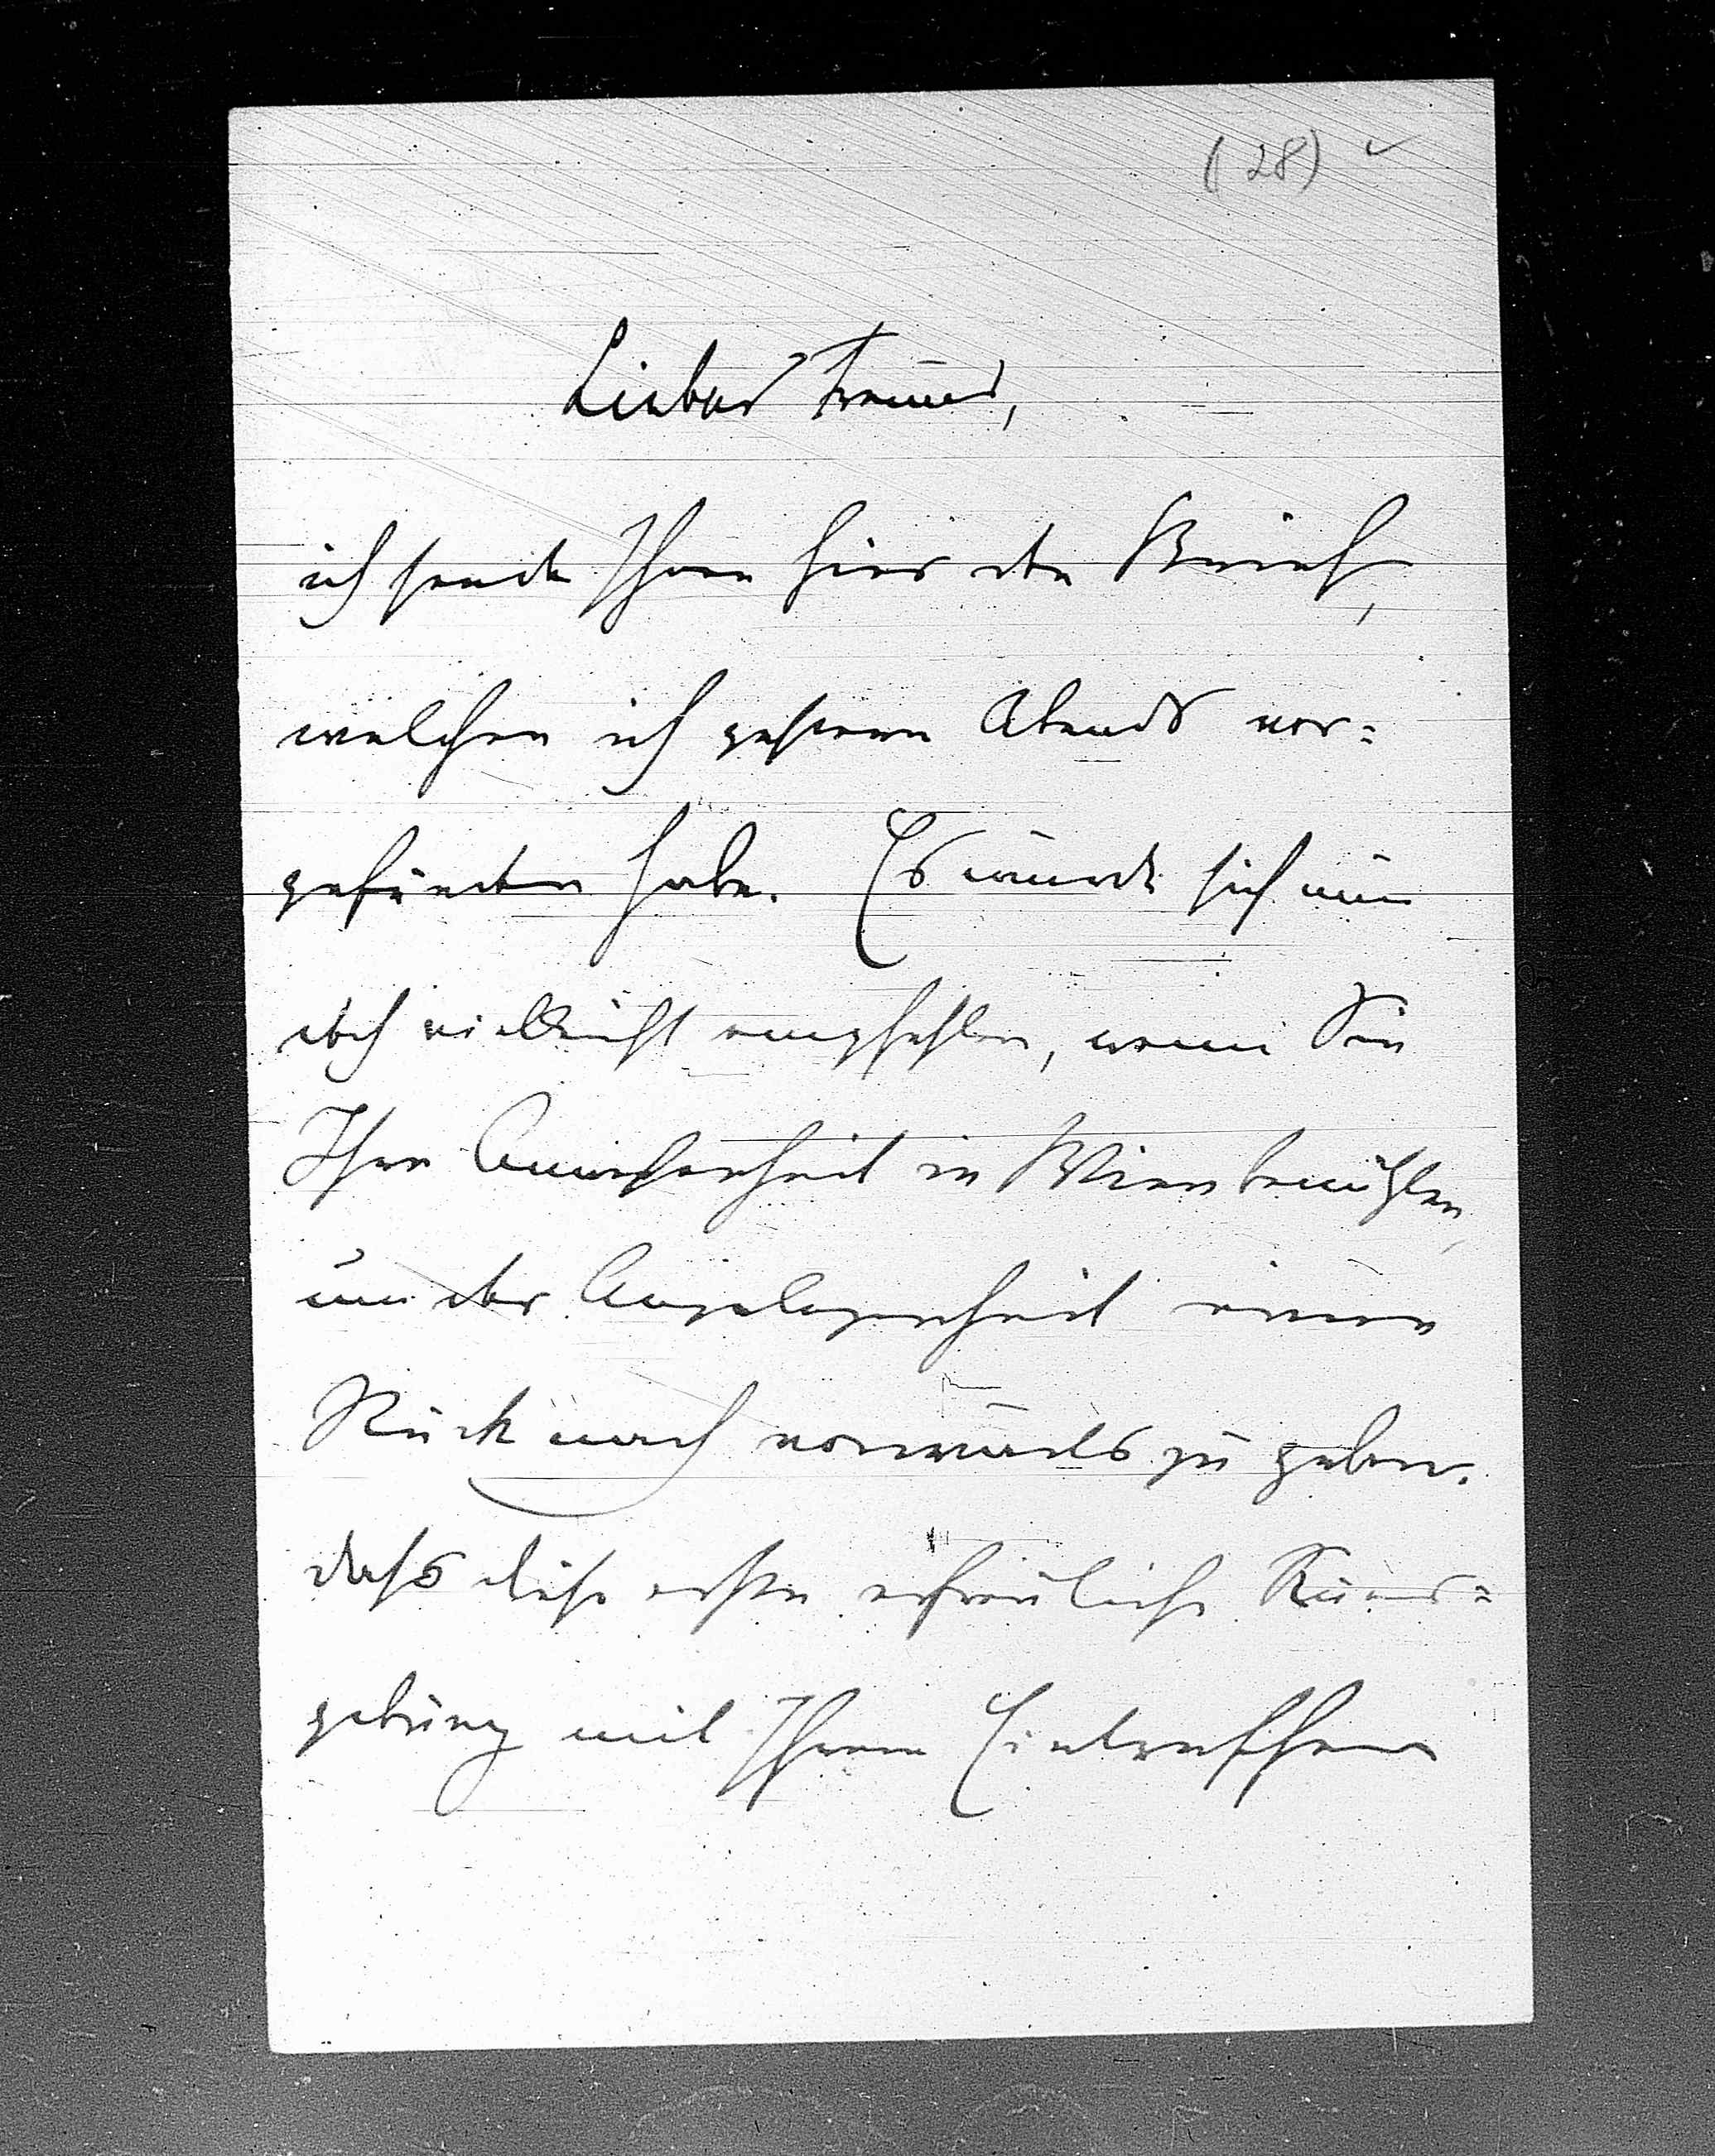 (28) ✓
Lieber Freund,
ich sende Ihnen hier den Brief,
welchen ich gestern Abends vor=
gefunden habe. Es würde sich nun
doch vielleicht empfehlen, wenn Sie
Ihre Anwesenheit in Wien benützten,
um der Angelegenheit einen
Ruck nach vorwärts zu geben.
dass diese erste erfreuliche Kund=
gebung mit Ihrem Eintreffen